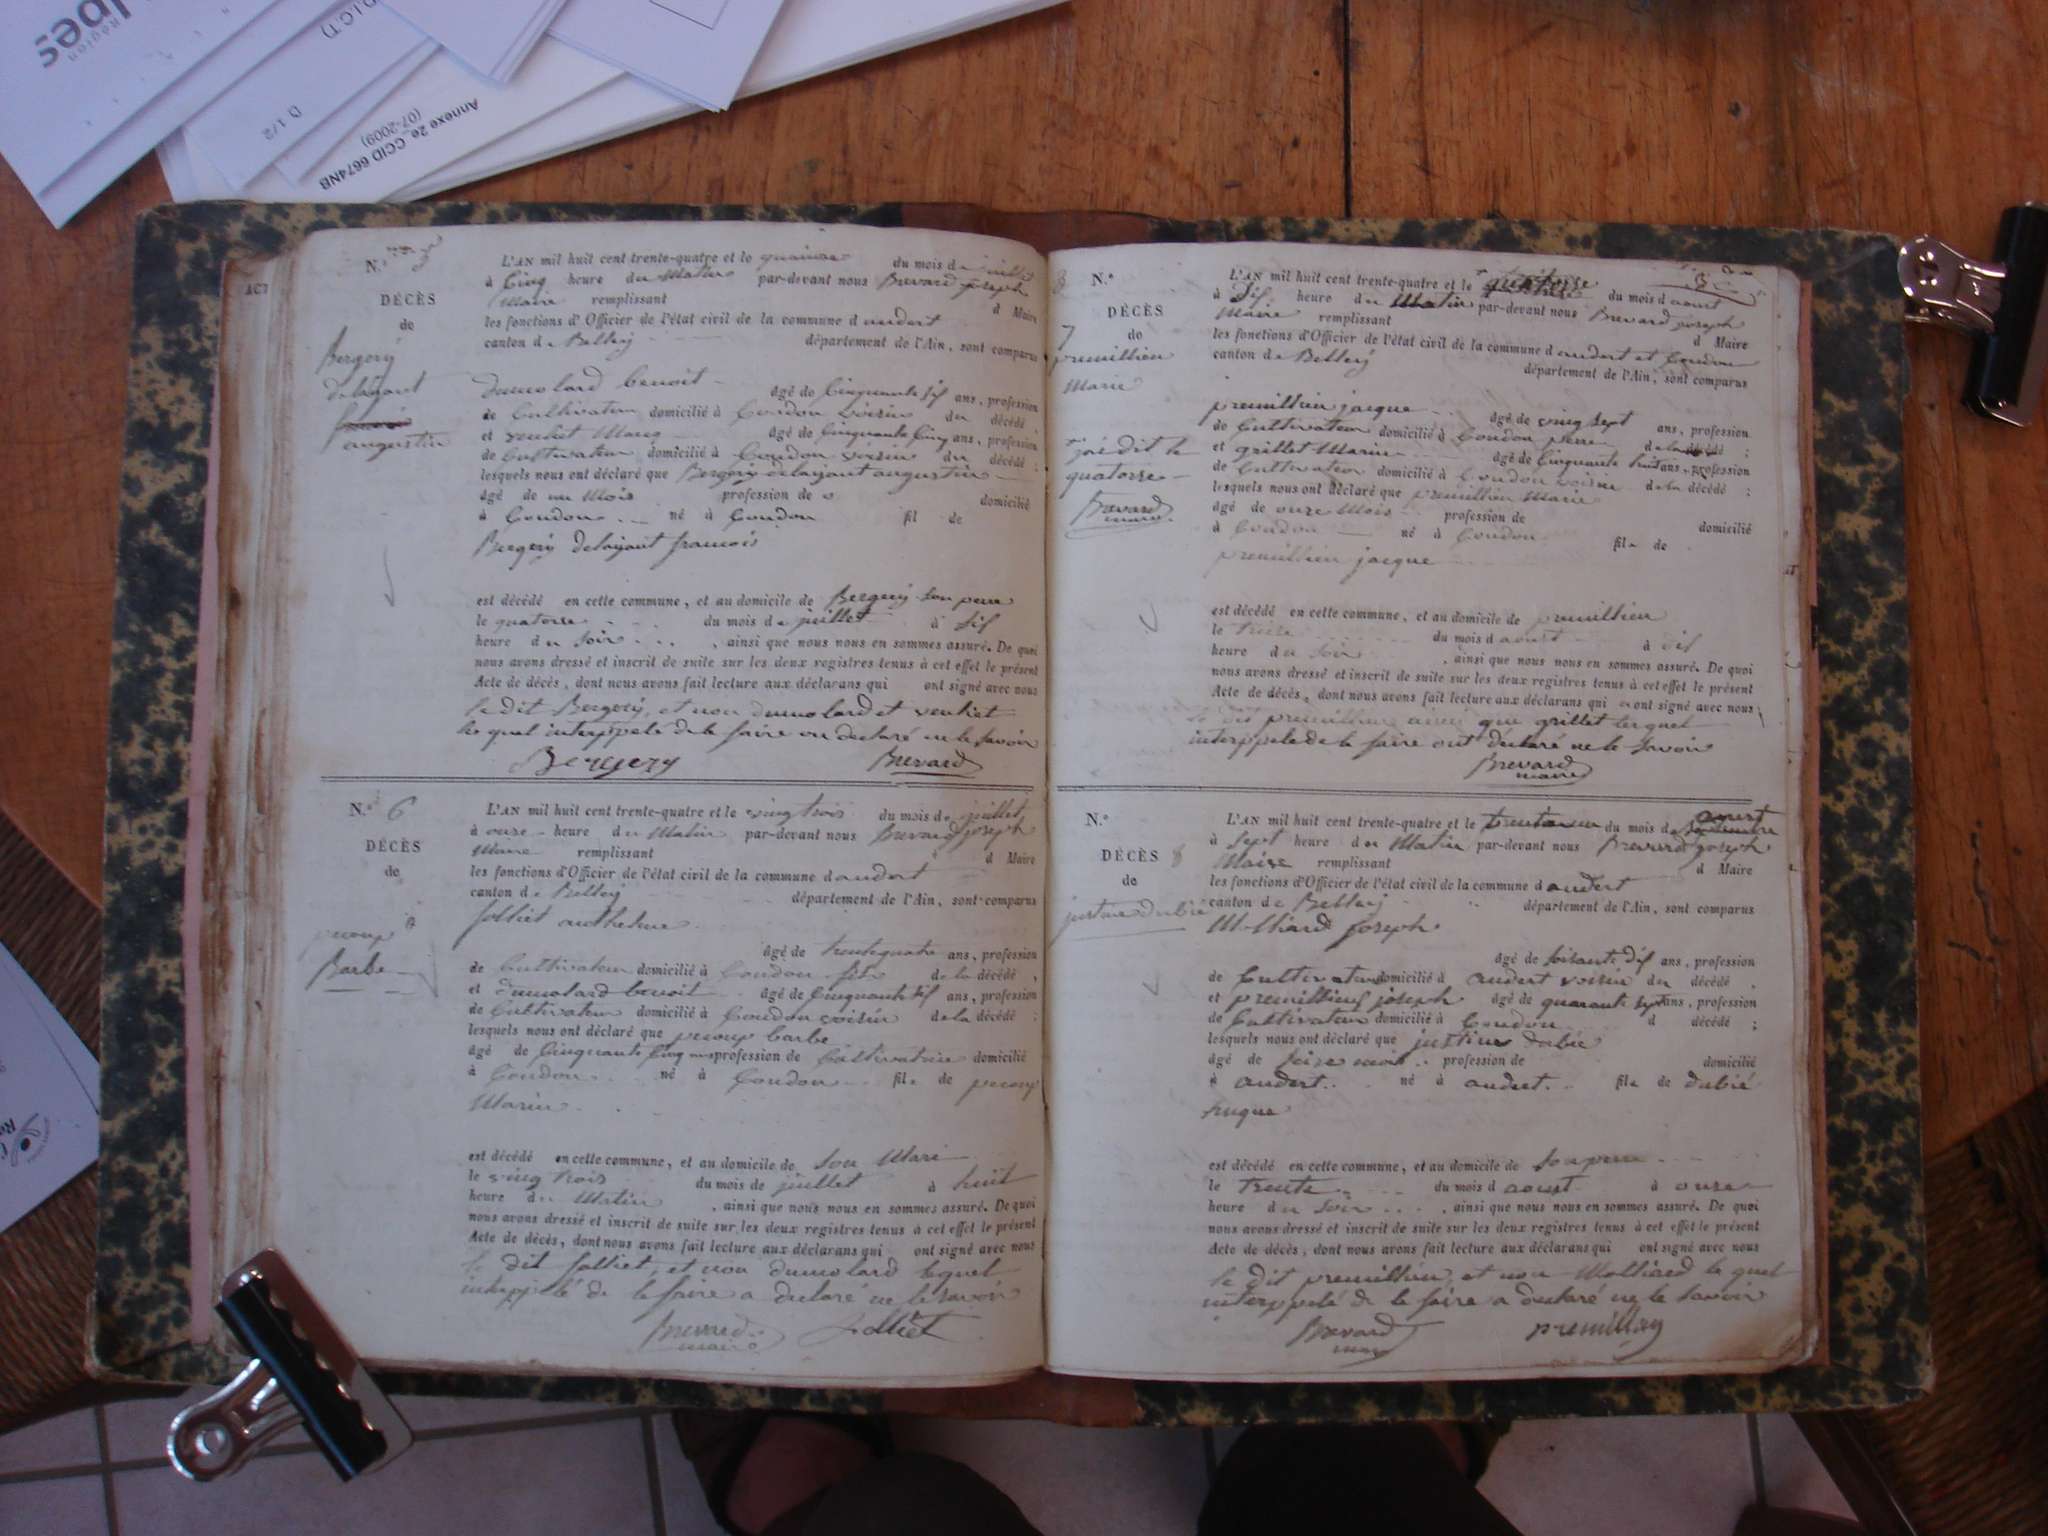 Annexe 2e_CCID 6674NB
(07-2009)
D 1/2
D.I.C.T)
Région
N.° 5
DÉCÈS
de
Bergery
delayant
augustin
L'AN mil huit cent trente-quatre et le quainse du mois de juillet
à Cinq heure du Matin par-devant nous Brevard joseph
Maire remplissant d Maire
les fonctions d'Officier de l'état civil de la commune d andert
canton de Belley département de l'Ain, sont comparus
dumolard benoit
âgé de Cinquante sif ans, profession
de Cultivateur domicilié à Coudon voisin du décédé
et venliet Marie âgé de Cinquante Cinq ans, profession
de Cultivateur domicilié à Coudon voisin du décédé ;
lesquels nous ont déclaré que Bergery delayant augustin
âgé de un Mois profession de domicilié
à Coudon né à Coudon fil de
Bergery delayant francois
est décédé en cette commune, et au domicile de Bergery son pere
le quatorse du mois de juillet à sif
heure du soir , ainsi que nous nous en sommes assuré. De quoi
nous avons dressé et inscrit de suite sur les deux registres tenus à cet effet le présent
Acte de décès, dont nous avons fait lecture aux déclarans qui ont signé avec nous
le dit Bergery, et non dumolard et venliet
les quel interppelé de le faire on declaré ne le savoir
Bergery Brevard
N.° 6
DÉCÈS
de
Barbe
L'AN mil huit cent trente-quatre et le vingtrois du mois de juillet
à onse heure du Matin par-devant nous Brevard joseph
Maire remplissant d Maire
les fonctions d'Officier de l'état civil de la commune d andert
canton de Belley département de l'Ain, sont comparus
Jolliet anthelme
âgé de trentequatre ans, profession
de Cultivateur domicilié à Coudon de la décédé ,
et dumolard benoit âgé de Cinquante sif ans, profession
de Cultivateur domicilié à Coudon voisin de la décédé ;
lesquels nous ont déclaré que barbe
âgé de Cinquante Cinq ans profession de Cultivatrice domicilié
à Coudon né à Coudon fil. de
Marin
est décédé en cette commune, et au domicile de son Mari
le vingtrois du mois de juillet à huit
heure du Matin , ainsi que nous nous en sommes assuré. De quoi
nous avons dressé et inscrit de suite sur les deux registres tenus à cet effet le présent
Acte de décès, dont nous avons fait lecture aux déclarans qui ont signé avec nous
le dit Jolliet, et non dumolard lequel
interppelé de le faire a declaré ne le savoir
Brevard Jolliet
maire
N.°
DÉCÈS
7 de
premillieu
Marie
jai dit le
quatorse
Brevard
maire
L'AN mil huit cent trente-quatre et le quatorse du mois d aoust
à Sif heure du Matin par-devant nous Brevard joseph
Maire remplissant d Maire
les fonctions d'Officier de l'état civil de la commune d andert et Coudon
canton de Belley département de l'Ain, sont comparus
premillieu jacque
âgé de vingsept ans, profession
de Cultivateur domicilié à Coudon pere de la décédé ;
et grillet Marin âgé de Cinquante huit ans, profession
de Cultivateur domicilié à Coudon voisin de la décédé ;
lesquels nous ont déclaré que premillieu Marie
âgé de onse Mois profession de domicilié
à Coudon né à Coudon fil. de
premillieu jacque
est décédé en cette commune, et au domicile de premillieu
le treise du mois d aoust à dif
heure du soir , ainsi que nous nous en sommes assuré. De quoi
nous avons dressé et inscrit de suite sur les deux registres tenus à cet effet le présent
Acte de décès, dont nous avons fait lecture aux déclarans qui ont signé avec nous
le dit premillieu ainsi que grillet lesquel
interppelé de le faire ont declaré ne le savoir
Brevard
maire
N.°
DÉCÈS 8
de
justine dubié
L'AN mil huit cent trente-quatre et le trenteun du mois de aoust
à Sept heure du Matin par-devant nous Brevard joseph
Maire remplissant d Maire
les fonctions d'Officier de l'état civil de la commune d andert
canton de Belley département de l'Ain, sont comparus
Molliard joseph
âgé de soisante dif ans, profession
de Cultivateur domicilié à andert voisin du décédé ,
et premillieu joseph âgé de quarante sept ans, profession
de Cultivateur domicilié à Coudon d décédé ;
lesquels nous ont déclaré que justine dubié
âgé de seise mois profession de domicilié
à andert né à andert fil. de dubié
huque
est décédé en cette commune, et au domicile de son pere
le trente du mois d aoust à onse
heure du soir , ainsi que nous nous en sommes assuré. De quoi
nous avons dressé et inscrit de suite sur les deux registres tenus à cet effet le présent
Acte de décès, dont nous avons fait lecture aux déclarans qui ont signé avec nous
le dit premillieu, et non Molliard le quel
interppelé de le faire a declaré ne le savoir
Brevard premillieu
maire